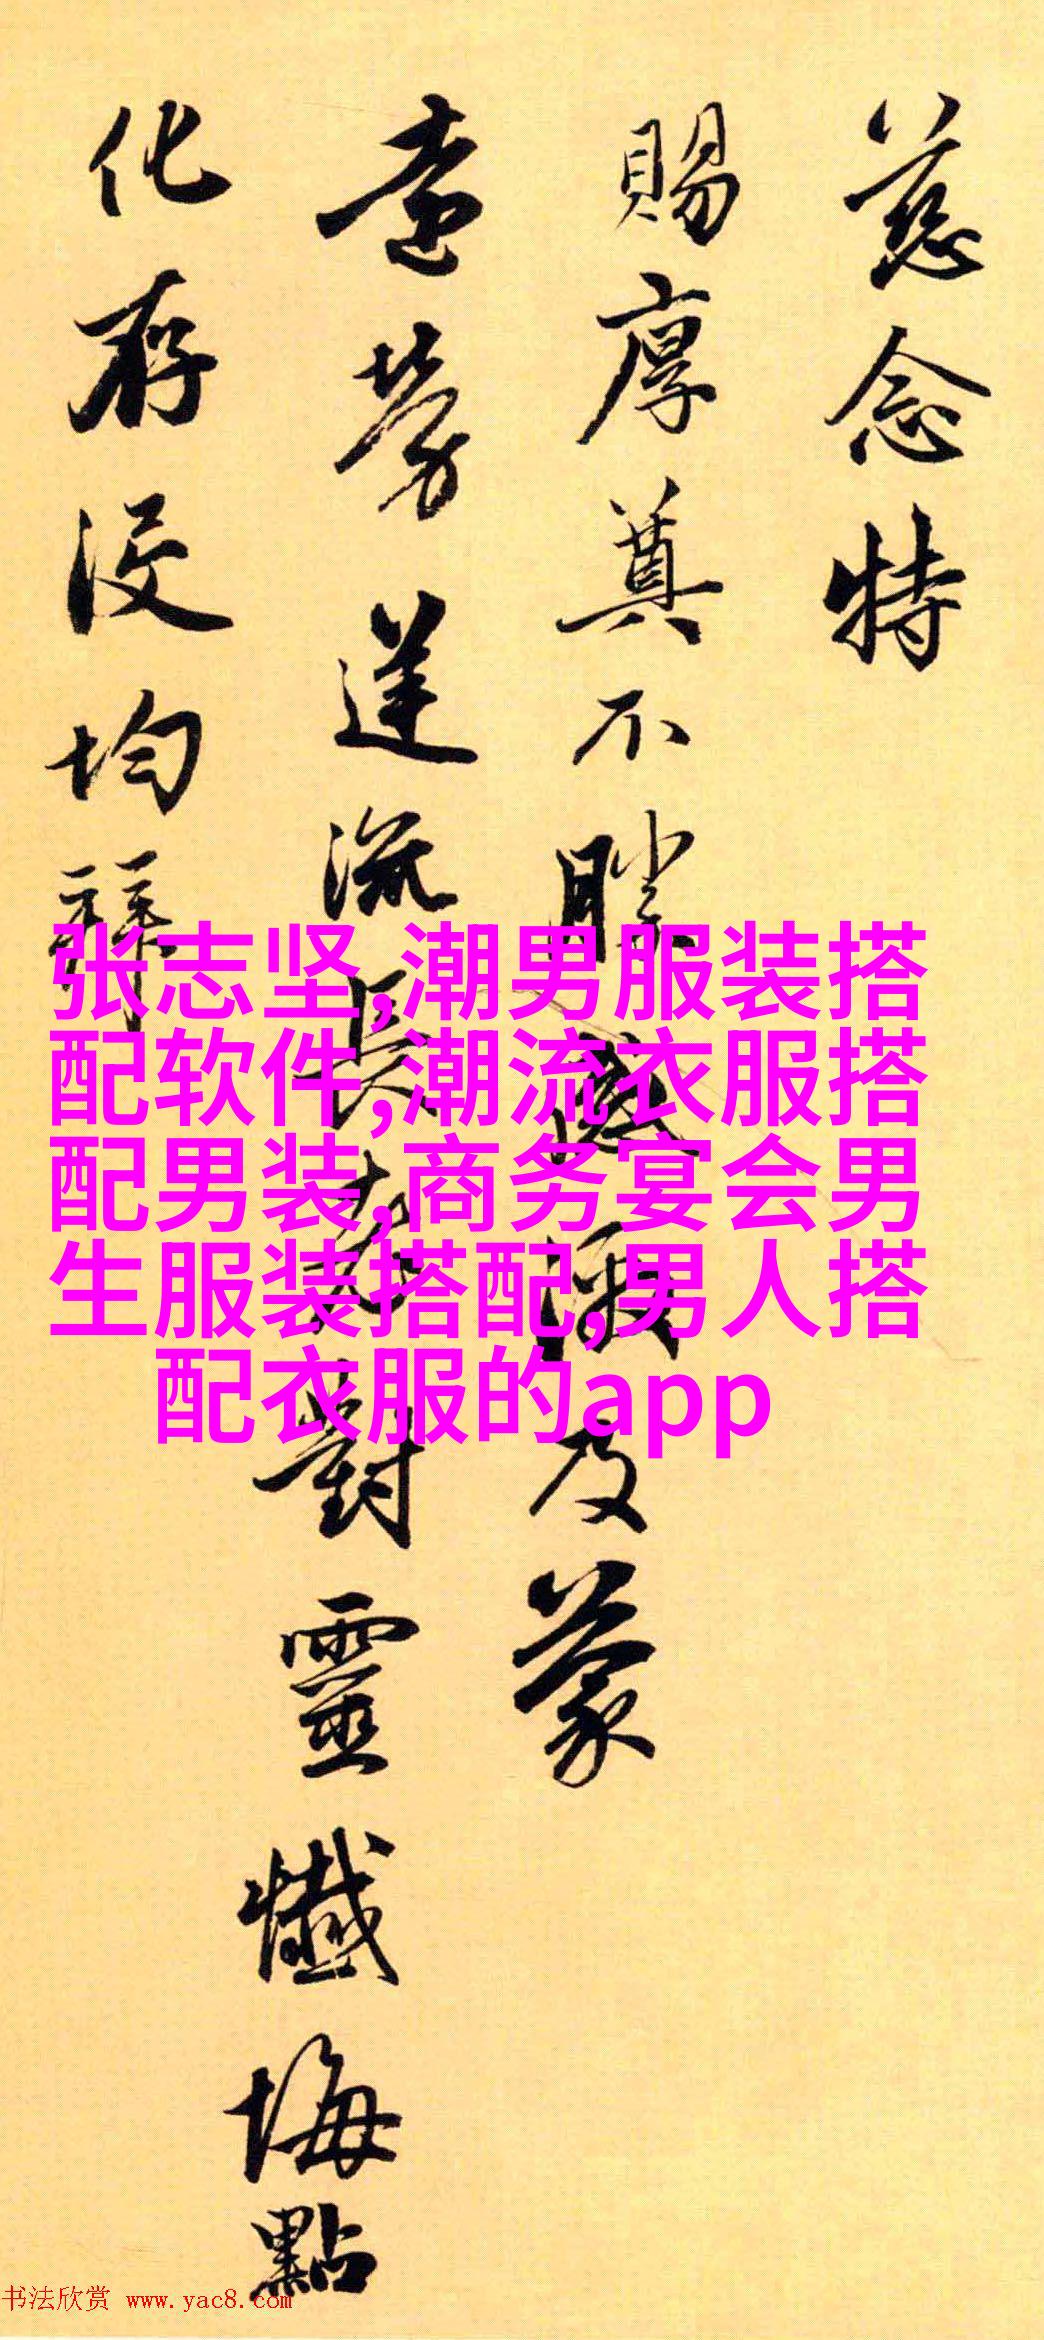 慈念特
賜厚奠不勝感激及蒙
遠勞蓮流長老對靈懺悔點
化存沒均拜
张志坚,潮男服装搭
配软件,潮流衣服搭
配男装,商务宴会男
生服装搭配,男人搭
配衣服的app
书法欣赏 www.yac8.com